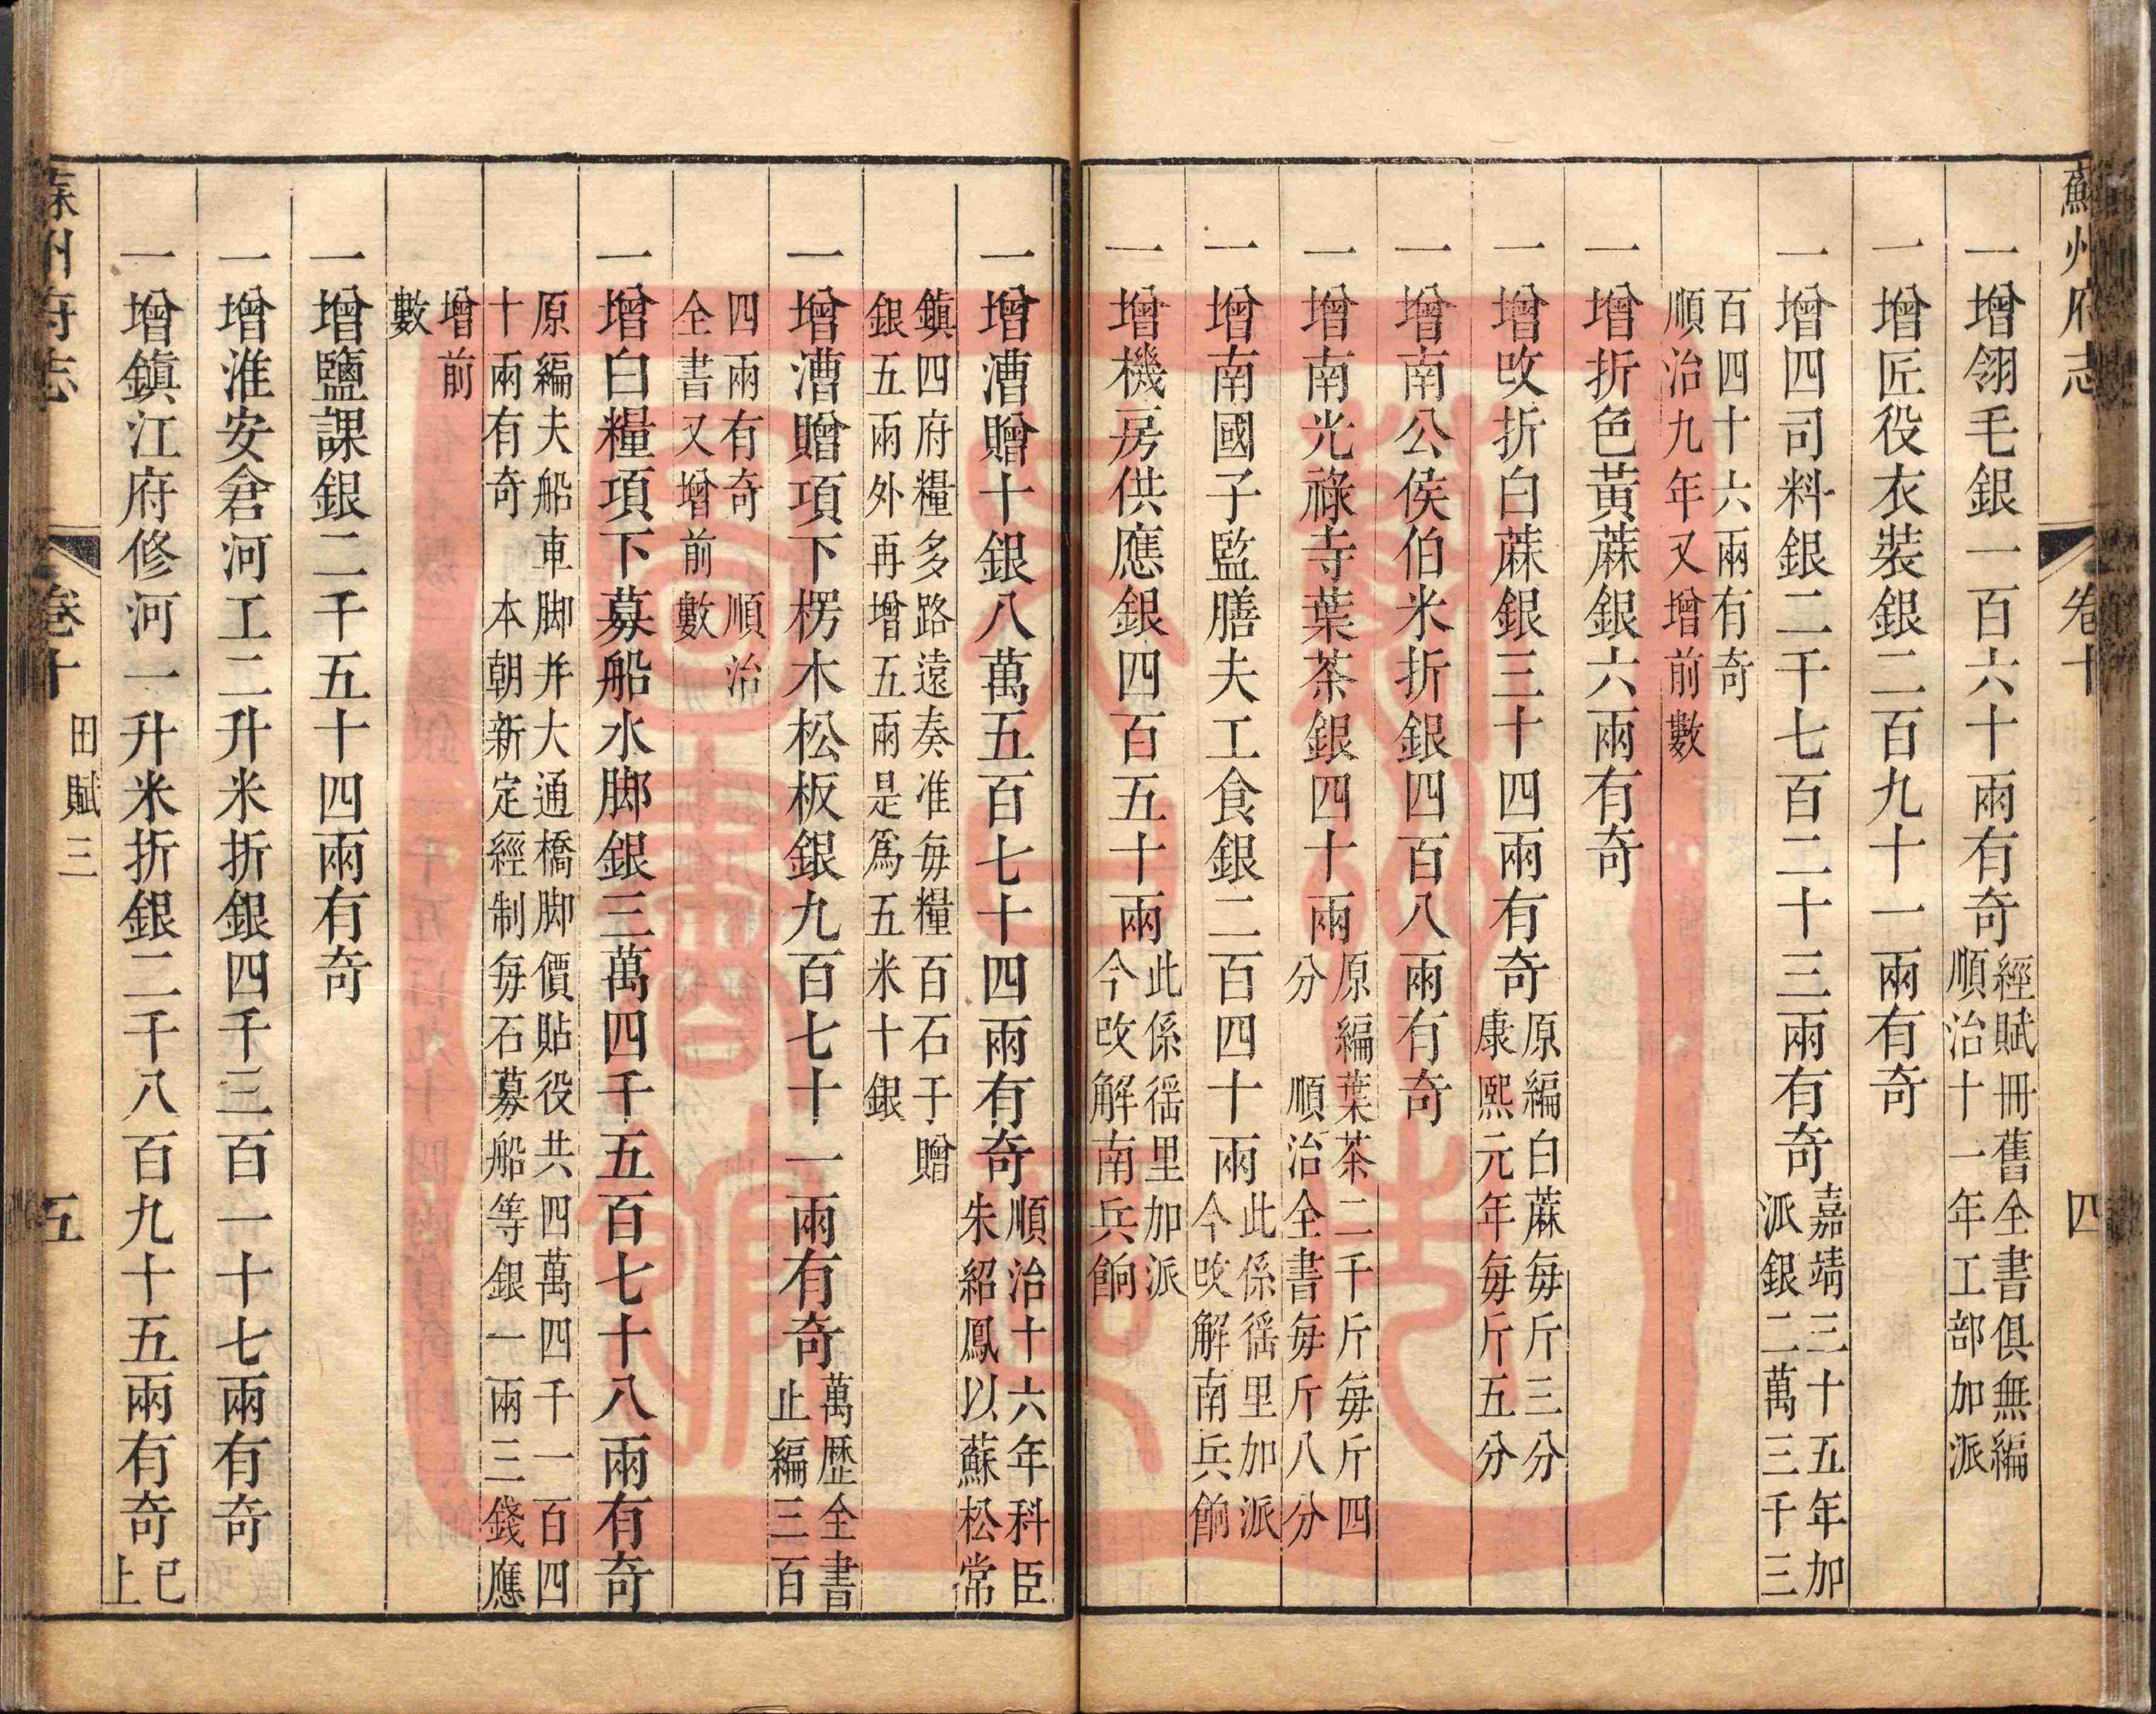 蘇州府志 卷十 四
一增翎毛銀一百六十兩有奇經賦冊舊全書俱無編順治十一年工部加派
一增匠役衣裝銀二百九十一兩有奇
一增四司料銀二千七百二十三兩有奇嘉靖三十五年加派銀二萬三千三
百四十六兩有奇順治九年又增前數
一增折色黃蔴銀六兩有奇
一增改折白蔴銀三十四兩有奇原編白蔴每斤三分康熙元年每斤五分
一增南公侯伯米折銀四百八兩有奇
一增南光祿寺葉茶銀四十兩原編葉茶二千斤每斤四分 順治全書每斤八分
一增南國子監膳夫工食銀二百四十兩此係徭里加派今改解南兵餉
一增機房供應銀四百五十兩此係徭里加派今改解南兵餉
一增漕贈十銀八萬五百七十四兩有奇順治十六年科臣朱紹鳳以蘇松常
鎮四府糧多路遠奏准每糧百石于贈銀五兩外再增五兩是爲五米十銀
一增漕贈項下楞木松板銀九百七十一兩有奇萬歷全書止編三百
四兩有奇 順治全書又增前數
一增白糧項下募船水脚銀三萬四千五百七十八兩有奇
原編夫船車脚并大通橋脚價貼役共四萬四千一百四十兩有奇 本朝新定經制每石募船等銀一兩三錢應
增前數
一增鹽課銀二千五十四兩有奇
一增淮安倉河工二升米折銀四千三百一十七兩有奇
一增鎮江府修河一升米折銀二千八百九十五兩有奇已上
蘇州府志 卷十 田賦三 五